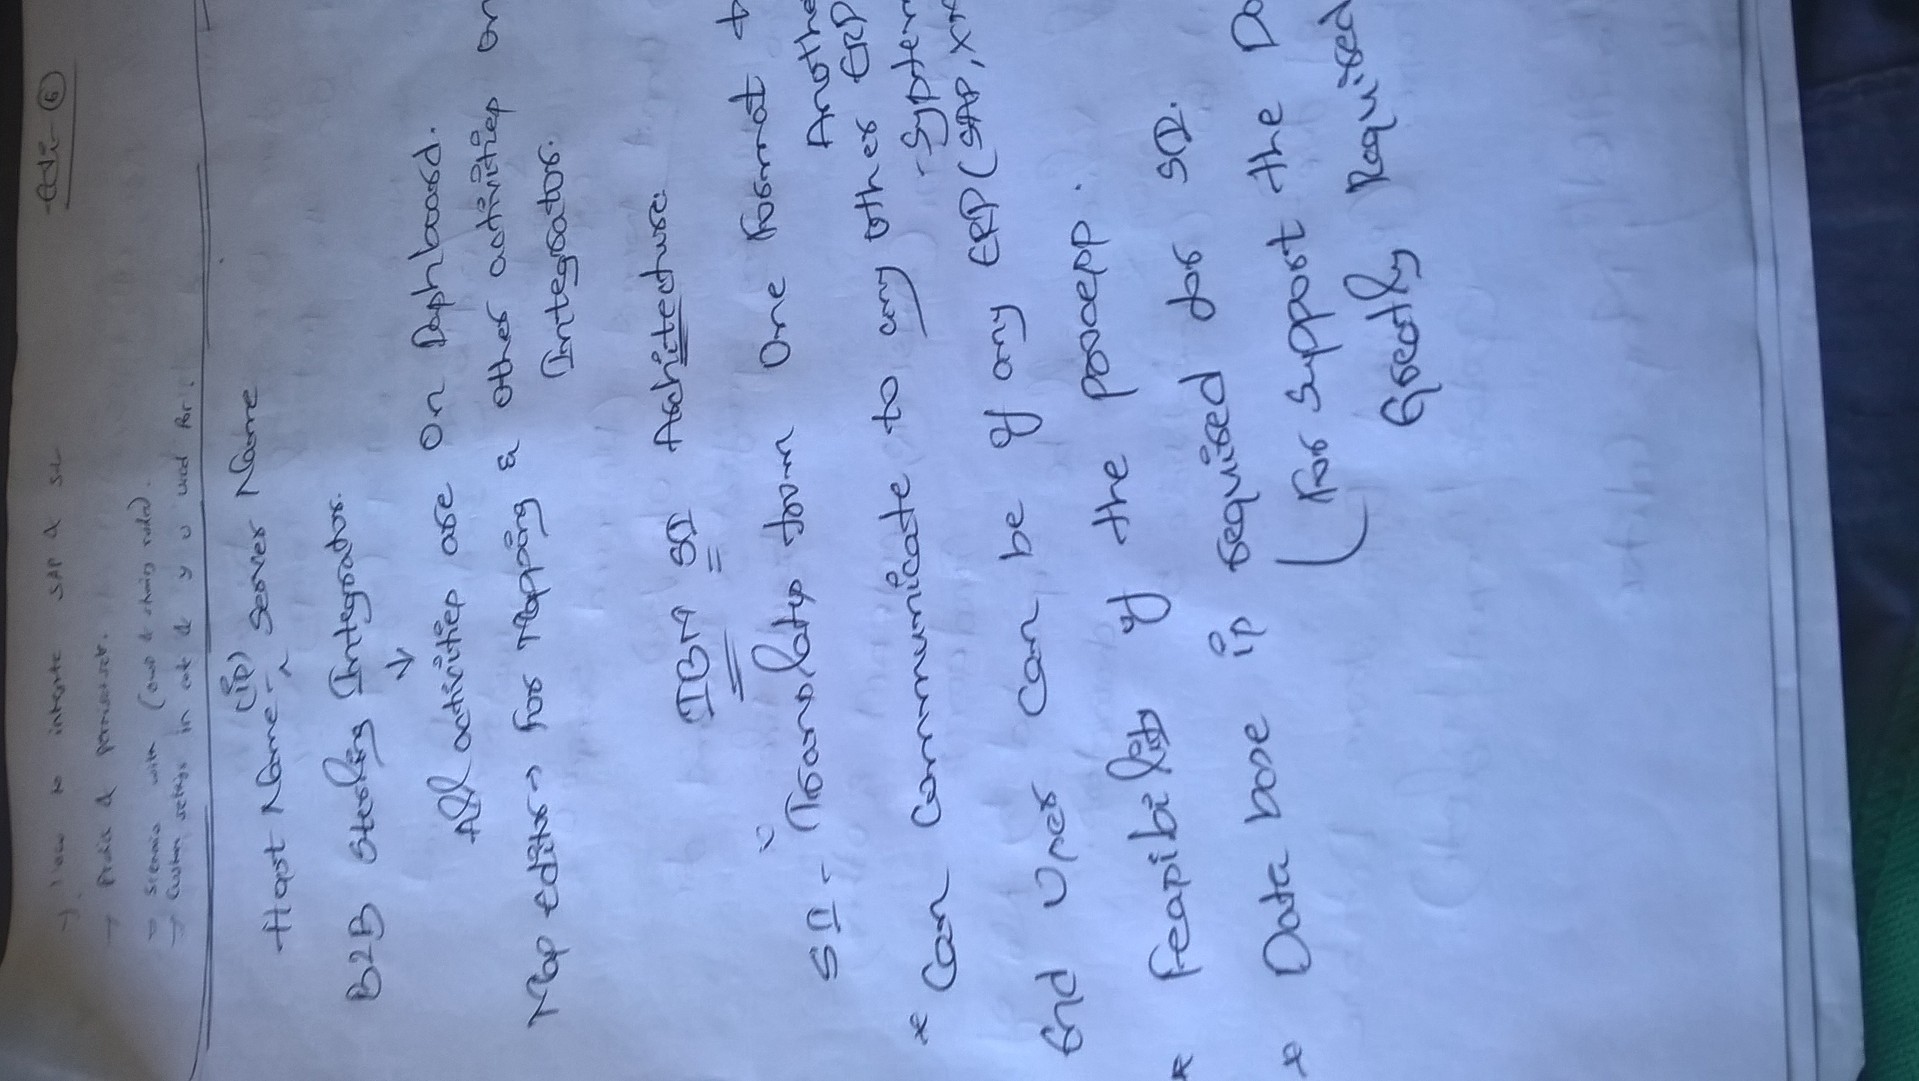 Edi - 6
→ How to integrate SAP & SI
→ profile & parameter.
→ Scenario with
→ Custom settings in out & y u used for.
(ip)
Host Name - Server Name
B2B Sterling Integrator.
↓
All activities are On Dashboard.
Map editor → For Mapping & other activities on
Integrator.
IBM SI Architecture
SI - Translates from One Format t
Another
* Can Communicate to any other ERP
System
End User Can be of any ERP (SAP, xx
* Feasibility of the process.
* Data base is required for SI.
(For Support the D
Greatly Required